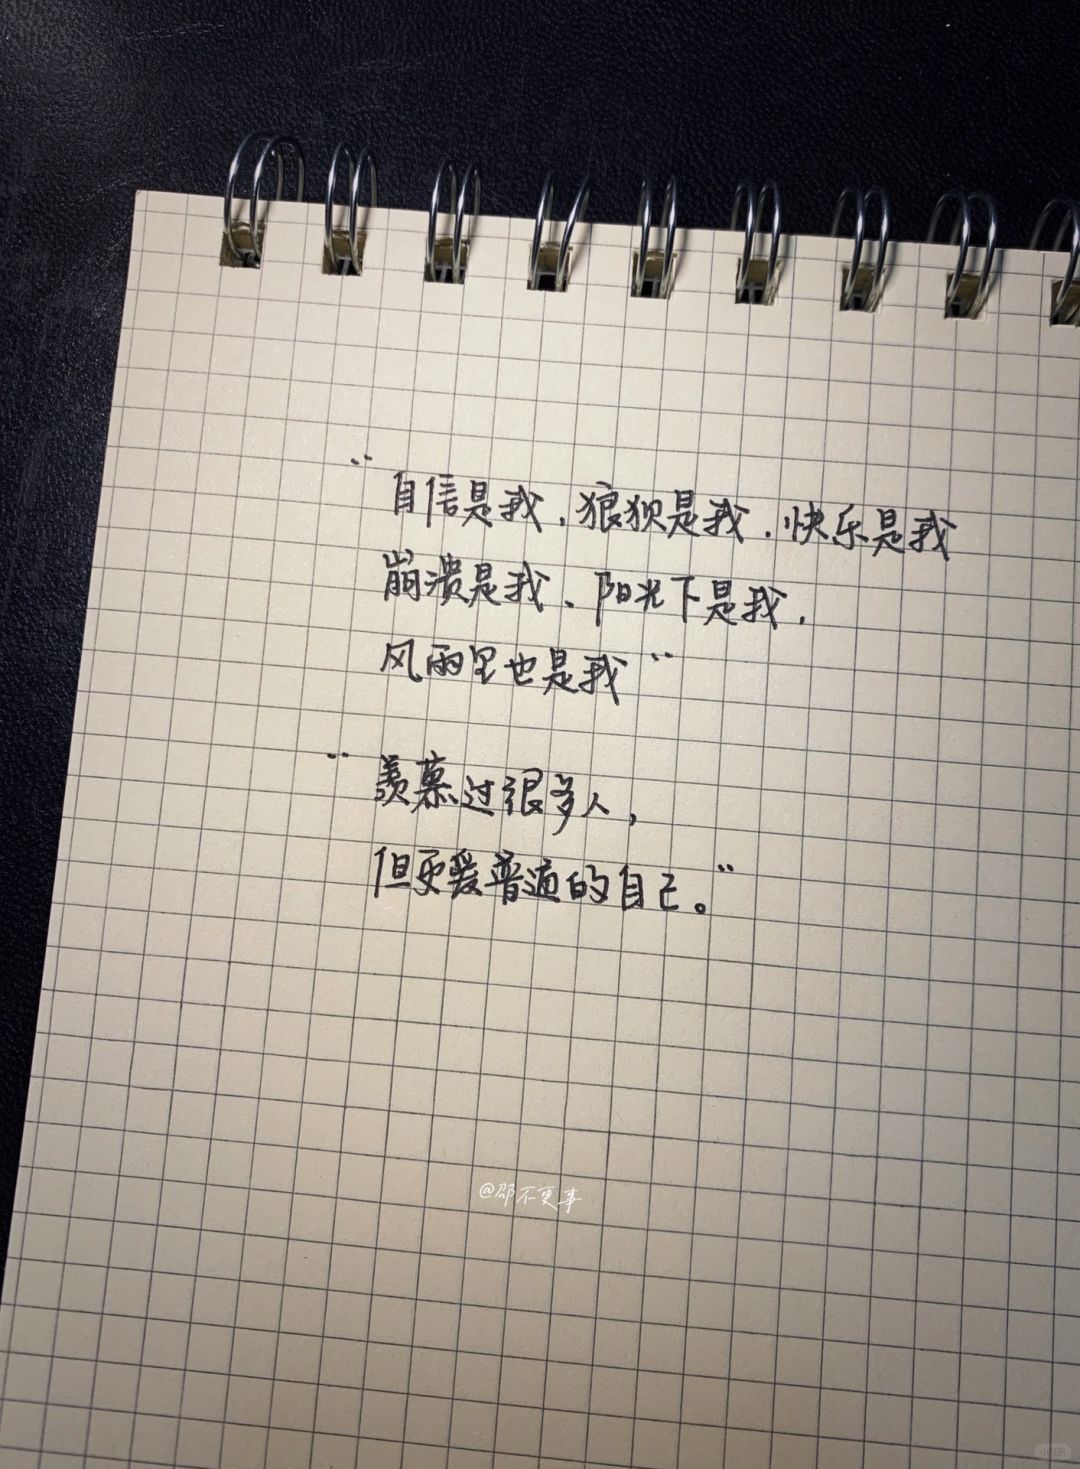 “自信是我，狼狈是我，快乐是我
崩溃是我、阳光下是我，
风雨里也是我”
“羡慕过很多人，
但更爱普通的自己。”
@邵不更事
小红书